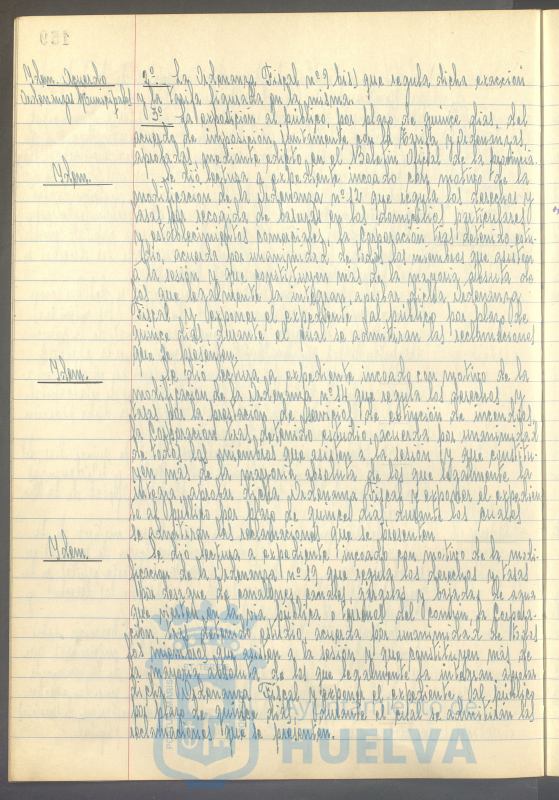 159
Idem. Acuerdo
Ordenanzas Municipales
2º.- La Ordenanza Fiscal nº 9 bis) que regula dicha exacción
y la tarifa figurada en la misma.
3º.- La exposición al público, por plazo de quince días, del
acuerdo de imposición juntamente con la Tarifa y Ordenanzas
aprobadas, mediante edicto en el Boletín Oficial de la provincia.
Idem.
Se dió lectura a expediente incoado con motivo de la
modificación de la Ordenanza nº 12 que regula los derechos y
tasas por recogida de basuras en los domicilios particulares
y establecimientos comerciales, la Corporación tras detenido estu-
dio, acuerda por unanimidad de todos los miembros que asisten
a la sesión y que constituyen más de la mayoría absoluta de
los que legalmente la integran, aprobar dicha Ordenanza
Fiscal y exponer el expediente al público por plazo de
quince días durante el cual se admitirán las reclamaciones
que se presenten.
Idem.
Se dió lectura a expediente incoado con motivo de la
modificación de la Ordenanza nº 14 que regula los derechos y
tasas por la prestación de servicios de extinción de incendios,
la Corporación tras detenido estudio, acuerda por unanimidad
de todos los miembros que asisten a la sesión y que constitu-
yen más de la mayoría absoluta de los que legalmente la
integra, aprobar dicha Ordenanza Fiscal y exponer el expedien-
te al público por plazo de quince días durante los cuales
se admitirán las reclamaciones que se presenten.
Idem.
Se dió lectura a expediente incoado con motivo de la modi-
ficación de la Ordenanza nº 19 que regula los derechos y tasas
por desagüe de canalones, canales, gárgolas y bajadas de agua
que viertan en la vía pública o terrenos del Común, la Corpora-
ción, tras detenido estudio, acuerda por unanimidad de todos
los miembros que asisten a la sesión y que constituyen más de
la mayoría absoluta de los que legalmente la integran, aprobar
dicha Ordenanza Fiscal y exponer el expediente al público
por plazo de quince días durante el cual se admitirán las
reclamaciones que se presenten.
Ayuntamiento de
HUELVA